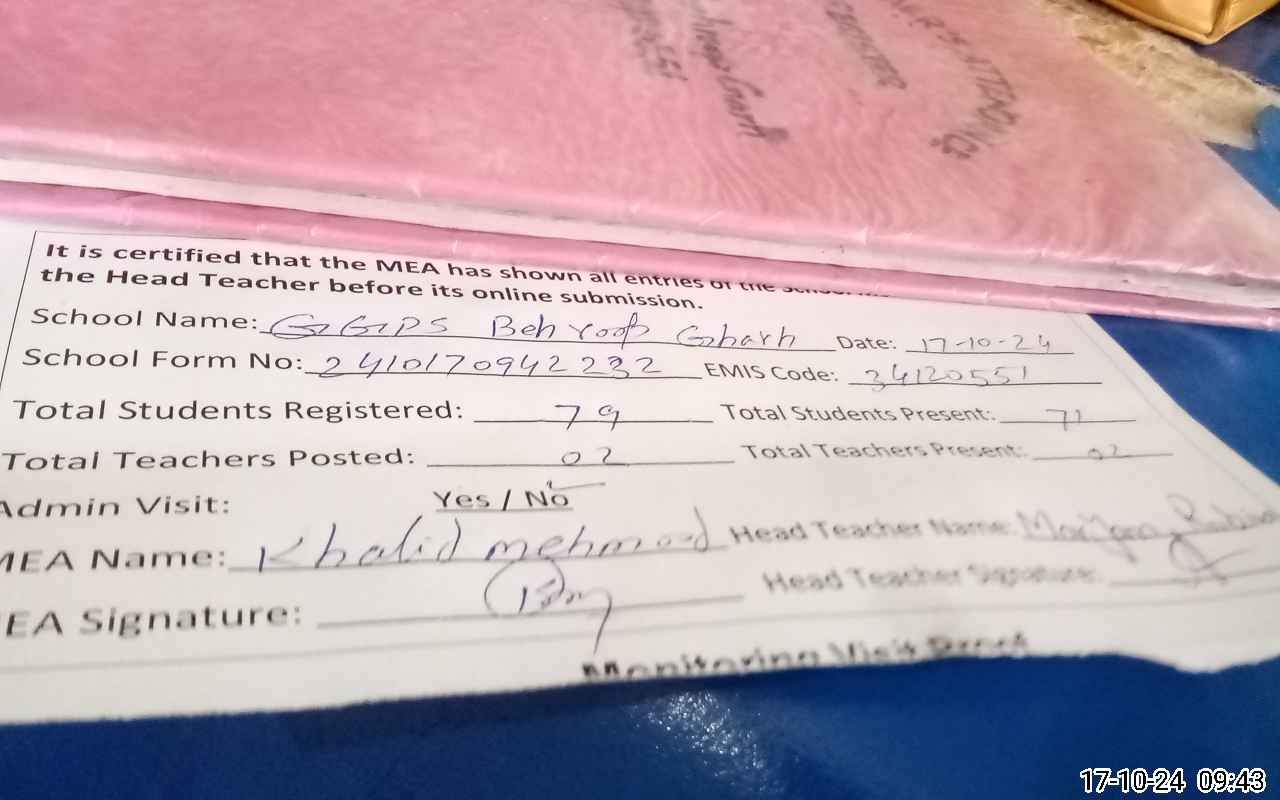 REGISTER
ATTENDANCE
It is certified that the MEA has shown all entries of the
the Head Teacher before its online submission.
School Name: GGPS Behroop Gharh Date: 17-10-24
School Form No: 2410170942232 EMIS Code: 34120551
Total Students Registered: 79 Total Students Present: 71
Total Teachers Posted: 02 Total Teachers Present: 02
Admin Visit: Yes / No
MEA Name: Khalid mehmood Head Teacher Name:
EA Signature: Head Teacher Signature:
Monitoring Visit Proof
17-10-24 09:43